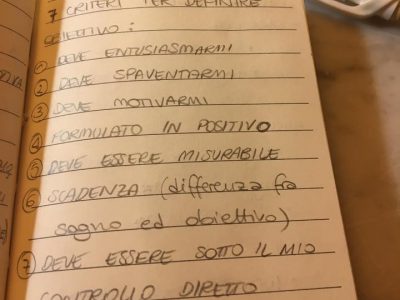 7 CRITERI PER DEFINIRE
OBIETTIVO:
① DEVE ENTUSIASMARMI
② DEVE SPAVENTARMI
③ DEVE MOTIVARMI
④ FORMULATO IN POSITIVO
⑤ DEVE ESSERE MISURABILE
⑥ SCADENZA (differenza fra
sogno ed obiettivo)
⑦ DEVE ESSERE SOTTO IL MIO
CONTROLLO DIRETTO